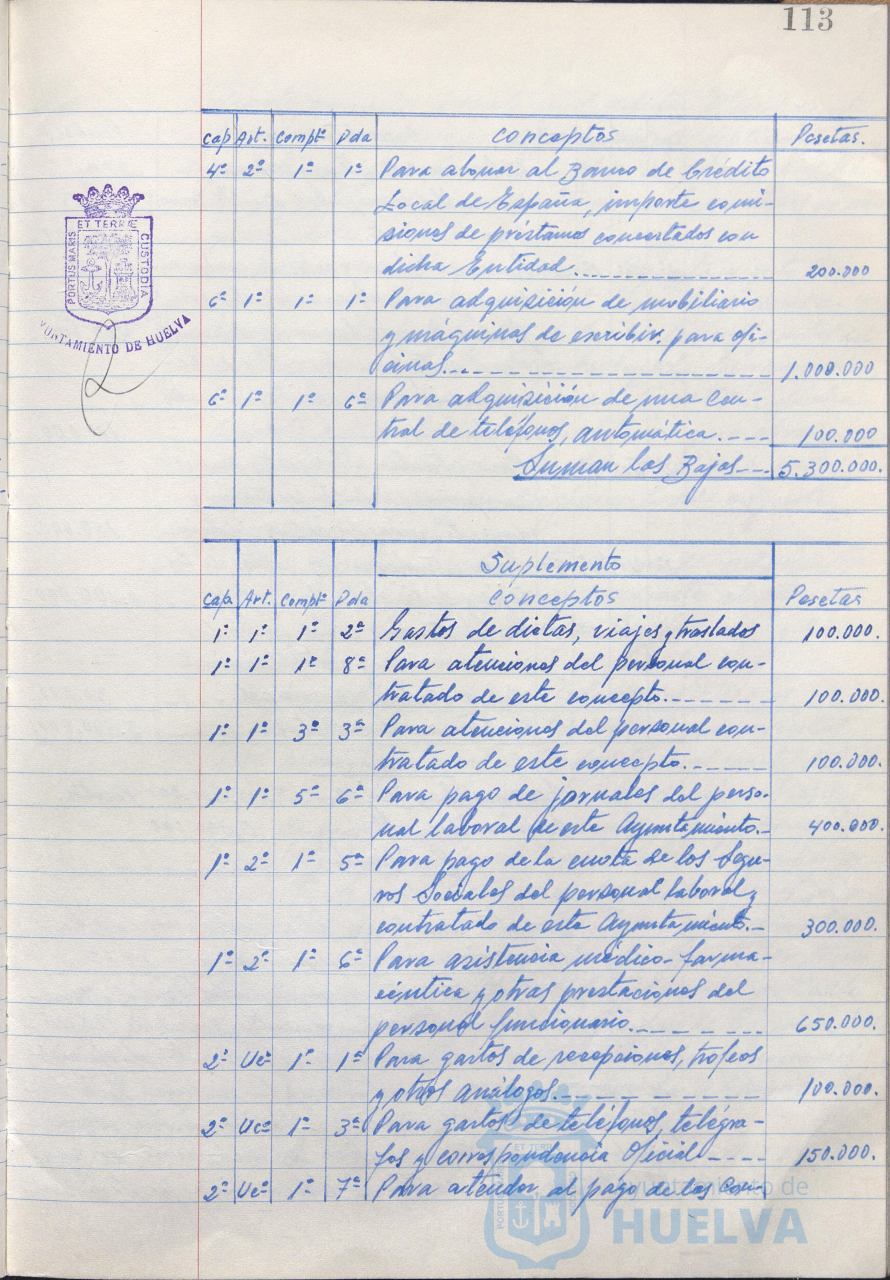 113
Cap Art. Compt Pda Conceptos Pesetas.
4º 2º 1º 1ª Para abonar al Banco de Crédito
Local de España, importe comi-
siones de préstamos concertados con
dicha Entidad 200.000
6º 1º 1º 1ª Para adquisición de mobiliario
y máquinas de escribir para ofi-
cinas 1.000.000
6º 1º 1º 6ª Para adquisición de una Cen-
tral de teléfonos, automática. 100.000
Suman las Bajas 5.300.000.
PORTUS MARIS ET TERRÆ CUSTODIA
YUNTAMIENTO DE HUELVA
Suplemento
Cap. Art. Compt Pda Conceptos Pesetas
1º 1º 1º 2ª Gastos de dietas, viajes y traslados 100.000.
1º 1º 1º 8ª Para atenciones del personal con-
tratado de este concepto. 100.000.
1º 1º 3º 3ª Para atenciones del personal con-
tratado de este concepto. 100.000.
1º 1º 5º 6ª Para pago de jornales del perso-
nal laboral de este Ayuntamiento. 400.000.
1º 2º 1º 5ª Para pago de la cuota de los Segu-
ros Sociales del personal laboral y
contratado de este Ayuntamiento. 300.000.
1º 2º 1º 6ª Para asistencia médico-farma-
céutica y otras prestaciones del
personal funcionario. 650.000.
2º Uc 1º 1ª Para gastos de recepciones, trofeos
y otros análogos. 100.000.
2º Uc 1º 3ª Para gastos de teléfonos, telégra-
fos y correspondencia Oficial 150.000.
2º Uc 1º 7ª Para atender al pago de los Con-
Ayuntamiento de
HUELVA